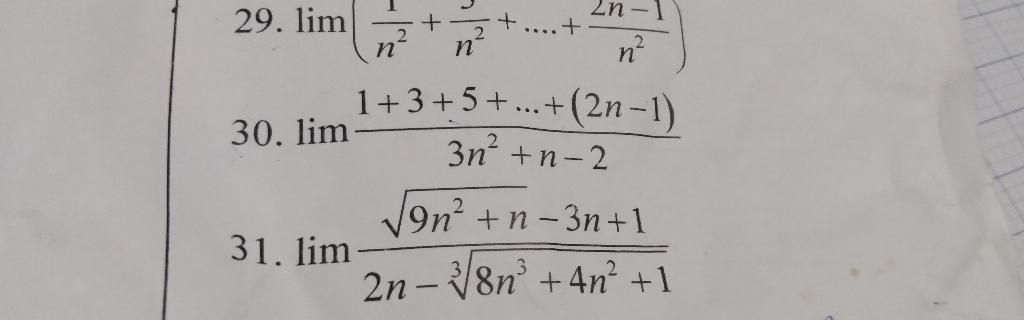 29. lim(1/n² + 3/n² + .... + (2n−1)/n²)
30. lim (1+3+5+...+(2n−1))/(3n² + n − 2)
31. lim (√(9n² + n) − 3n + 1)/(2n − ∛(8n³ + 4n² + 1))